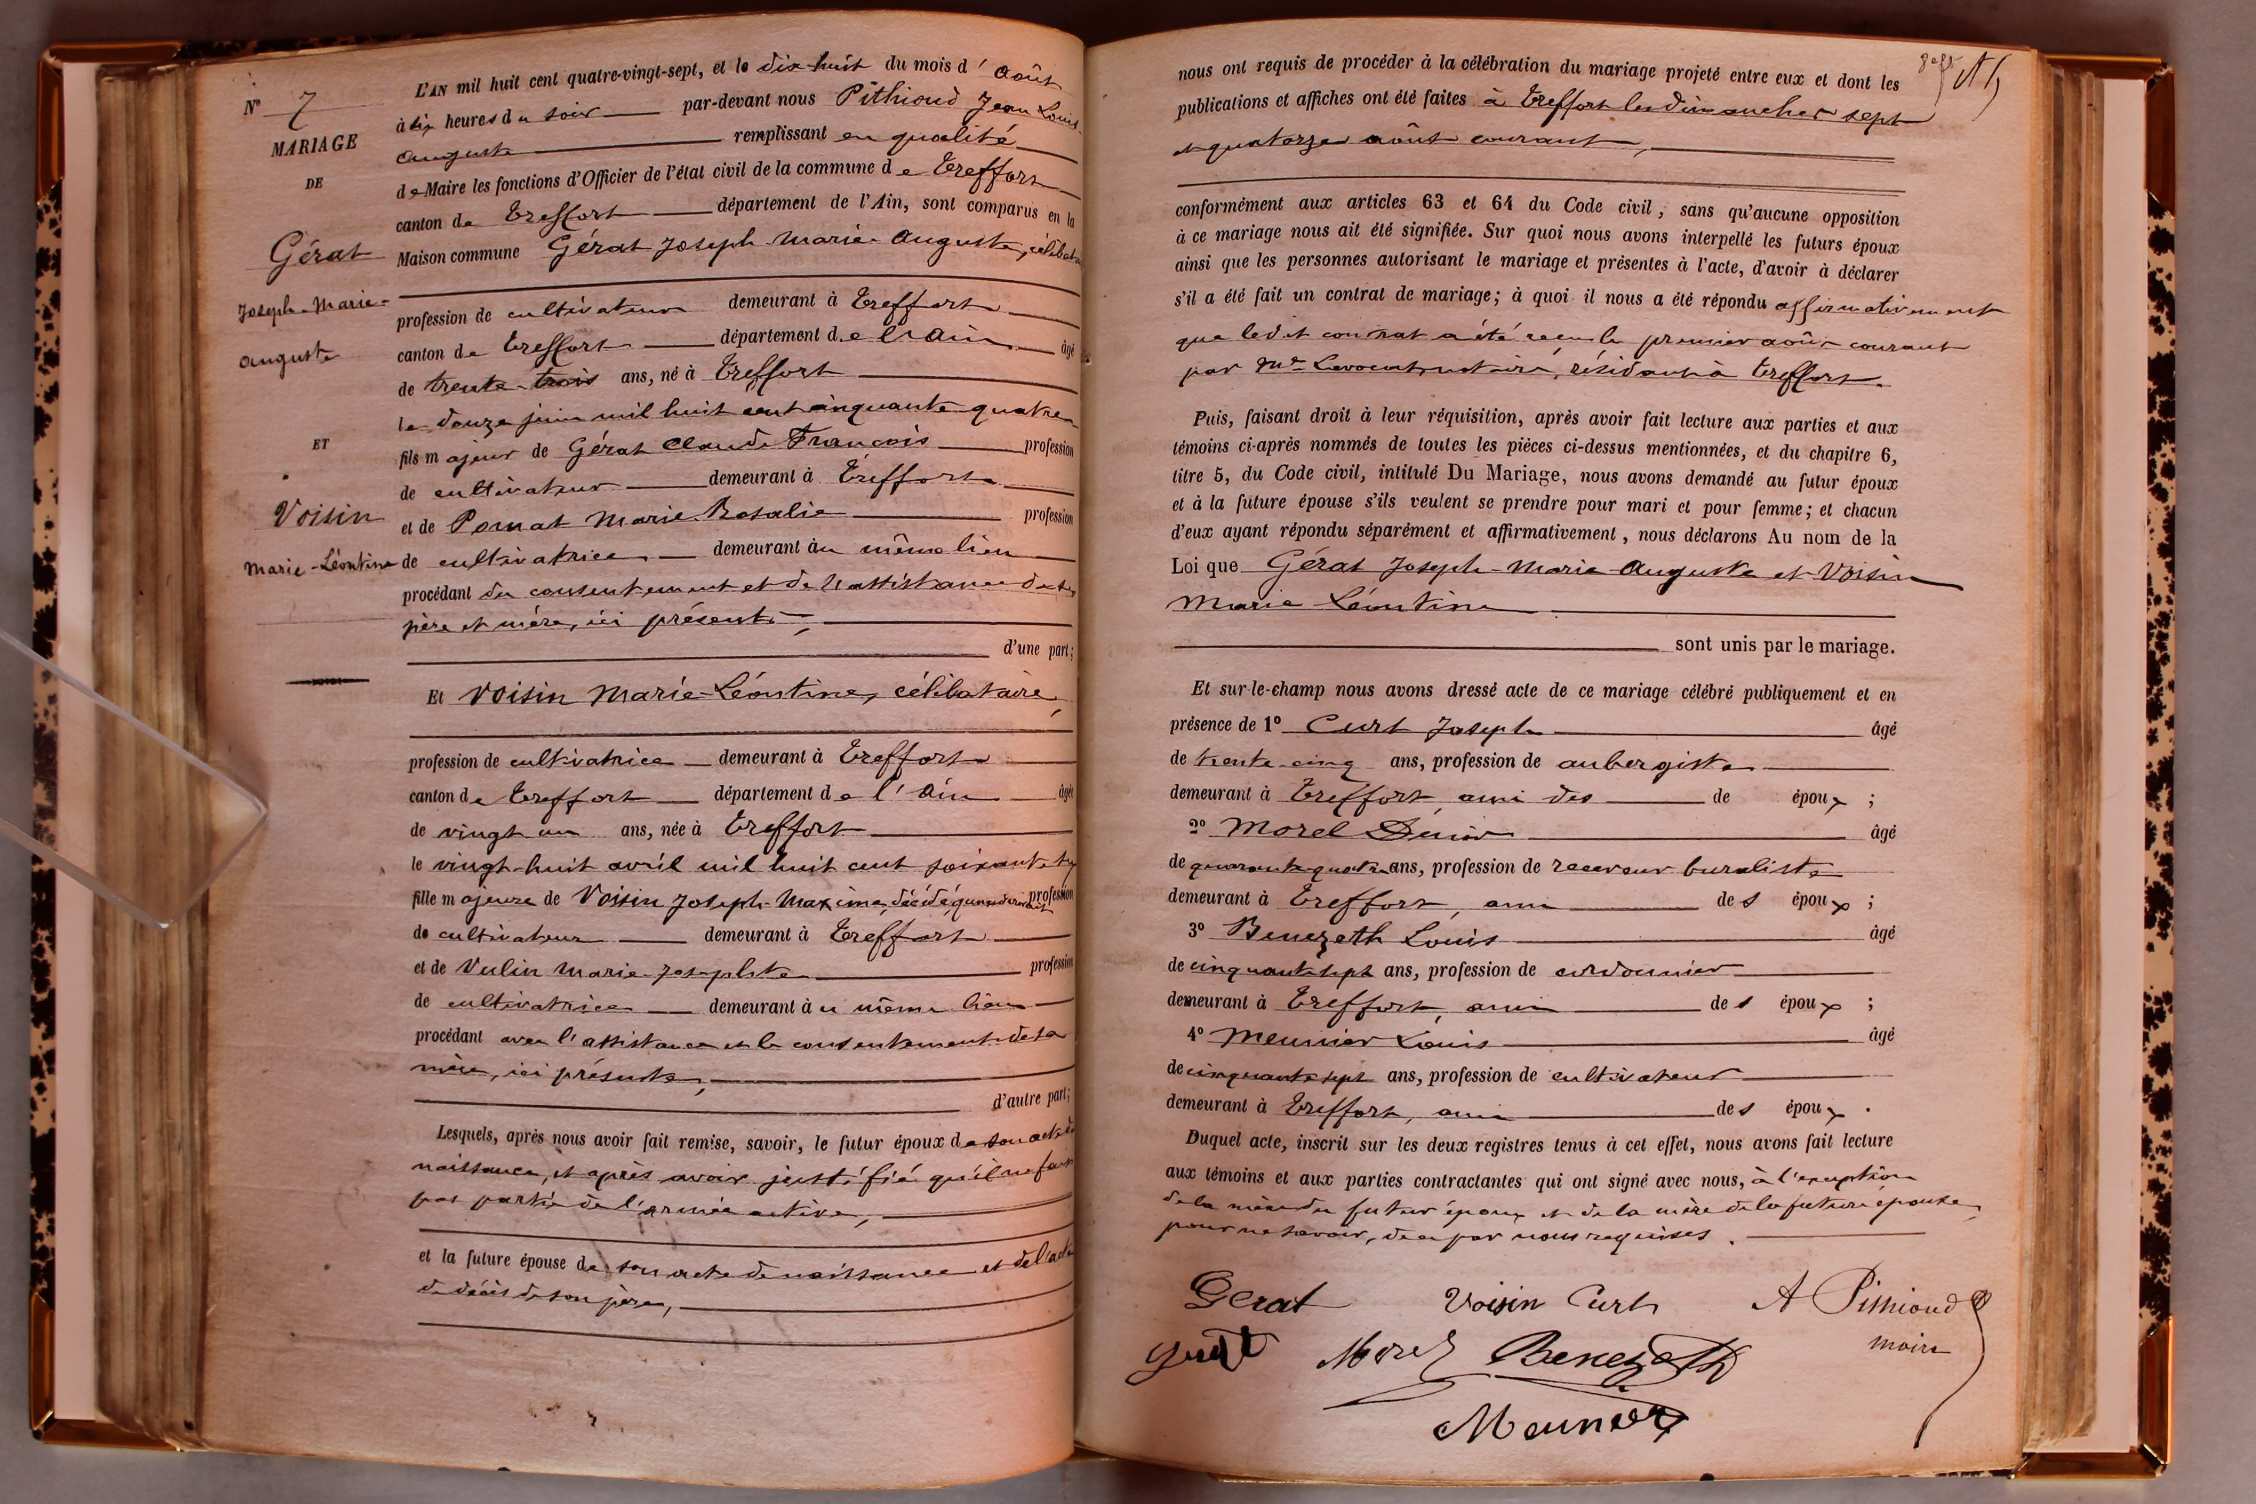 N° 7
MARIAGE
DE
Gérat
Joseph-Marie-
Auguste
ET
Voisin
Marie-Léontine
L'AN mil huit cent quatre-vingt-sept, et le dix-huit du mois d' août
à six heures du soir par-devant nous Pithioud Jean Louis-
Auguste remplissant en qualité
de Maire les fonctions d'Officier de l'état civil de la commune de Treffort
canton de Treffort département de l'Ain, sont comparus en la
Maison commune Gérat Joseph-Marie-Auguste, célibataire
profession de cultivateur demeurant à Treffort
canton de Treffort département de l'Ain âgé
de trente-trois ans, né à Treffort
le douze juin mil huit cent cinquante-quatre
fils majeur de Gérat Claude François profession
de cultivateur demeurant à Treffort
et de Pomat Marie-Rosalie profession
de cultivatrice demeurant au même lieu
procédant du consentement et de l'assistance de ses
père et mère, ici présents,
d'une part;
Et Voisin Marie-Léontine, célibataire,
profession de cultivatrice demeurant à Treffort
canton de Treffort département de l'Ain âgée
de vingt-un ans, née à Treffort
le vingt-huit avril mil huit cent soixante-six
fille majeure de Voisin Joseph-Maxime, décédé, quand vivait profession
de cultivateur demeurant à Treffort
et de Vulin Marie-Josephte profession
de cultivatrice demeurant au même lieu
procédant avec l'assistance et le consentement de sa
mère, ici présente,
d'autre part;
Lesquels, après nous avoir fait remise, savoir, le futur époux de son acte de
naissance, et après avoir justifié qu'il ne fait
pas partie de l'armée active,
et la future épouse de son acte de naissance et de l'acte
de décès de son père,
nous ont requis de procéder à la célébration du mariage projeté entre eux et dont les
publications et affiches ont été faites à Treffort les dimanches sept
et quatorze août courant,
conformément aux articles 63 et 64 du Code civil, sans qu'aucune opposition
à ce mariage nous ait été signifiée. Sur quoi nous avons interpellé les futurs époux
ainsi que les personnes autorisant le mariage et présentes à l'acte, d'avoir à déclarer
s'il a été fait un contrat de mariage; à quoi il nous a été répondu affirmativement
que ledit contrat a été reçu le premier août courant
par Me notaire, résidant à Treffort.
Puis, faisant droit à leur réquisition, après avoir fait lecture aux parties et aux
témoins ci-après nommés de toutes les pièces ci-dessus mentionnées, et du chapitre 6,
titre 5, du Code civil, intitulé Du Mariage, nous avons demandé au futur époux
et à la future épouse s'ils veulent se prendre pour mari et pour femme; et chacun
d'eux ayant répondu séparément et affirmativement, nous déclarons Au nom de la
Loi que Gérat Joseph-Marie-Auguste et Voisin
Marie-Léontine
sont unis par le mariage.
Et sur-le-champ nous avons dressé acte de ce mariage célébré publiquement et en
présence de 1° Curt Joseph âgé
de trente-cinq ans, profession de aubergiste
demeurant à Treffort, ami des de époux ;
2° Morel Désiré âgé
de quarante-quatre ans, profession de receveur buraliste
demeurant à Treffort, ami des époux ;
3° Benezeth Louis âgé
de cinquante-sept ans, profession de cordonnier
demeurant à Treffort, ami des époux ;
4° Meunier Louis âgé
de cinquante-sept ans, profession de cultivateur
demeurant à Treffort, ami des époux .
Duquel acte, inscrit sur les deux registres tenus à cet effet, nous avons fait lecture
aux témoins et aux parties contractantes qui ont signé avec nous, à l'exception
de la mère du futur époux et de la mère de la future épouse,
pour ne savoir, de ce par nous requises.
Gerat Voisin Curt A Pithioud
maire
Gerat Morel Benezeth
Meunier